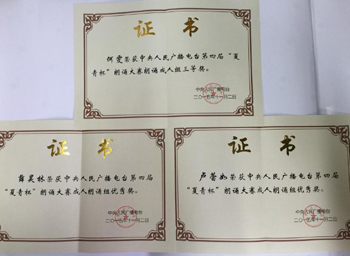 证书
何雯荣获中央人民广播电台第四届“夏
青杯”朗诵大赛朗诵成人组三等奖。
中央人民广播电台
二〇一五年十一月二日
证书
薛昊林荣获中央人民广播电台第四届
“夏青杯”朗诵大赛成人朗诵组优秀奖。
中央人民广播电台
二〇一五年十一月二日
证书
荣获中央人民广播电台第四届
“夏青杯”朗诵大赛成人朗诵组优秀奖。
中央人民广播电台
二〇一五年十一月二日